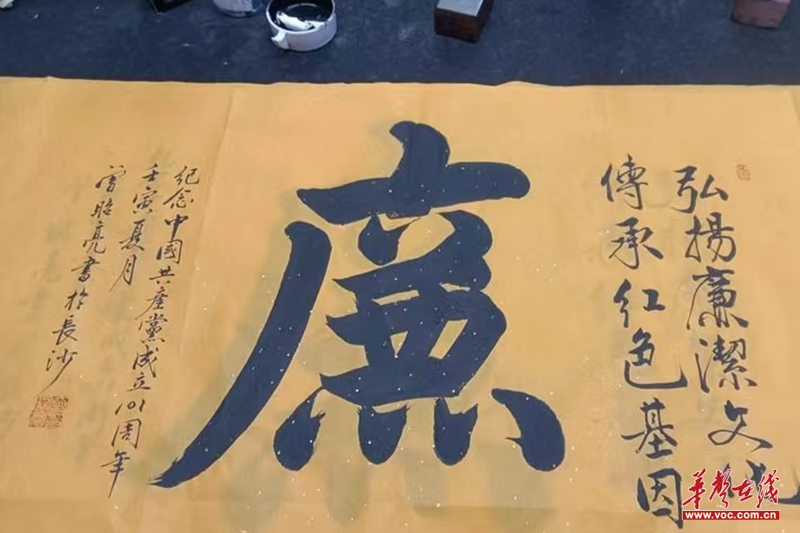 弘揚廉潔文化
傳承红色基因
廉
纪念中國共產黨成立101周年
壬寅夏月
曾昭亮書於長沙
華聲在线
www.voc.com.cn